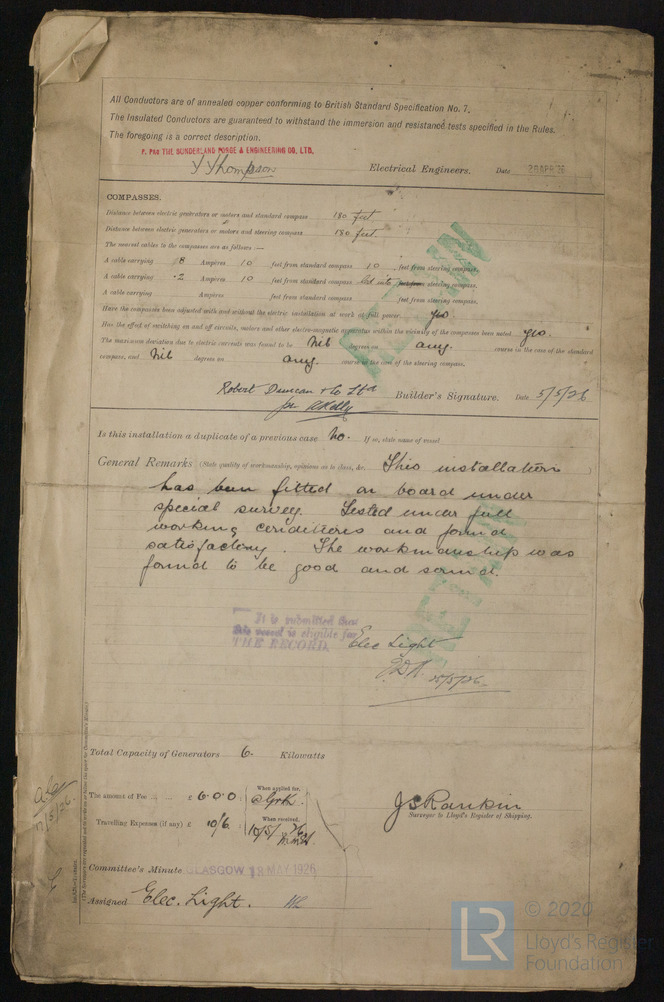 All Conductors are of annealed copper conforming to British Standard Specification No. 7.
The Insulated Conductors are guaranteed to withstand the immersion and resistance tests specified in the Rules.
The foregoing is a correct description.
P. PRO THE SUNDERLAND FORGE & ENGINEERING CO. LTD.
Thompson Electrical Engineers. Date 28 APR 26
COMPASSES.
Distance between electric generators or motors and standard compass 180 feet
Distance between electric generators or motors and steering compass 180 feet
The nearest cables to the compasses are as follows :—
A cable carrying 8 Ampères 10 feet from standard compass 10 feet from steering compass.
A cable carrying .2 Ampères 10 feet from standard compass led into steering compass.
A cable carrying Ampères feet from standard compass feet from steering compass.
Have the compasses been adjusted with and without the electric installation at work at full power. yes
Has the effect of switching on and off circuits, motors and other electro-magnetic apparatus within the vicinity of the compasses been noted. yes.
The maximum deviation due to electric currents was found to be Nil degrees on any course in the case of the standard
compass, and Nil degrees on any course in the case of the steering compass.
RETAIN
Robert Duncan & Co Ltd Builder's Signature. Date 5/5/26
Kelly
Is this installation a duplicate of a previous case No. If so, state name of vessel
General Remarks (State quality of workmanship, opinions as to class, &c. This installation
has been fitted on board under
special survey. Tested under full
working conditions and found
satisfactory. The workmanship was
found to be good and sound.
RETAIN
It is submitted that
this vessel is eligible for
THE RECORD. Elec Light
25/5/26
Total Capacity of Generators 6. Kilowatts
The amount of Fee £ 6.0.0 When applied for,
Travelling Expenses (if any) £ 10/6 When received,
10/5/26
J S Rankin
Surveyor to Lloyd's Register of Shipping.
17/5/26.
Committee's Minute GLASGOW 18 MAY 1926
Assigned Elec. Light.
LR
© 2020
Lloyd's Register
Foundation